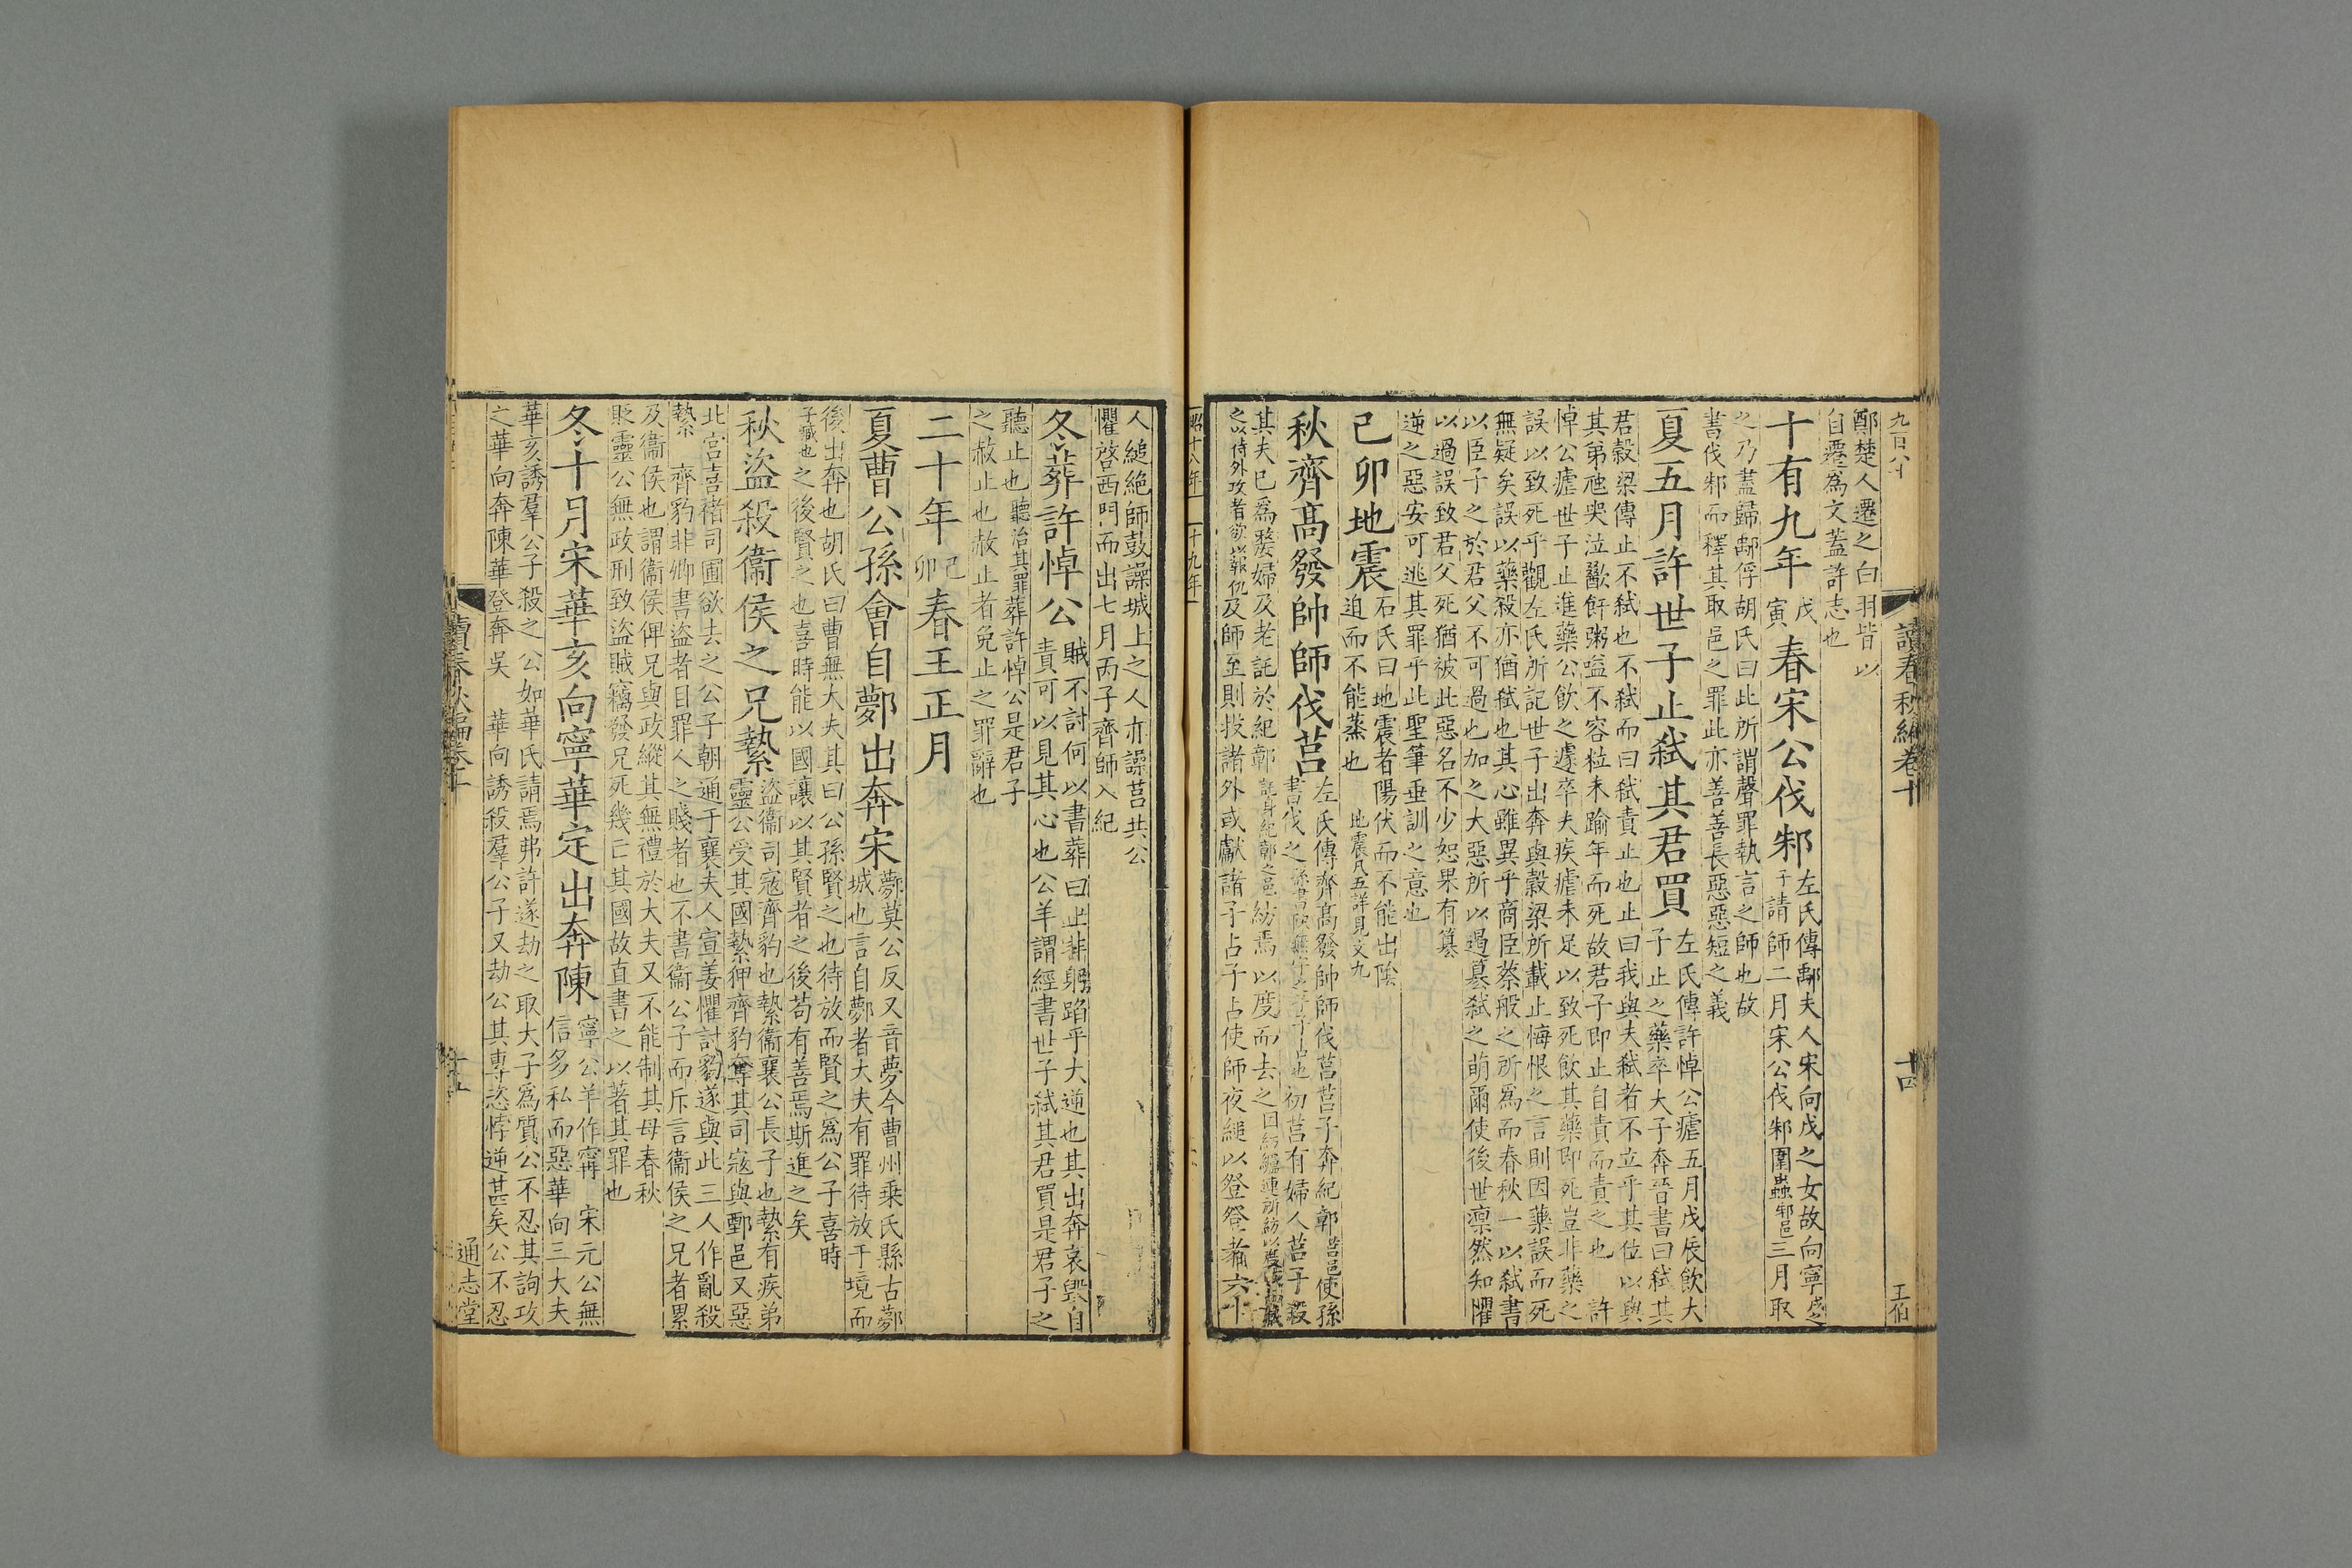 讀春秋編卷十
十四
王伯
鄭楚人遷之白羽皆以
自遷爲文蓋許志也
十有九年戊寅春宋公伐邾左氏傳鄅夫人宋向戌之女故向寧戌之
子請師二月宋公伐邾圍蟲邾邑三月取
之乃蓋歸鄅俘胡氏曰此所謂聲罪執言之師也故
書伐邾而釋其取邑之罪此亦善善長惡惡短之義
夏五月許世子止弑其君買左氏傳許悼公瘧五月戊辰飲大
子止之藥卒大子奔晉書曰弑其
君穀梁傳止不弑也不弑而曰弑責止也止曰我與夫弑者不立乎其位以與
其弟虺哭泣歠飦粥嗌不容粒未踰年而死故君子即止自責而責之也 許
悼公瘧世子止進藥公飲之遽卒夫疾瘧未足以致死飲其藥即死豈非藥之
誤以致死乎觀左氏所記世子出奔與穀梁所載止悔恨之言則因藥誤而死
無疑矣誤以藥殺亦猶弑也其心雖異乎商臣蔡般之所爲而春秋一以弑書
以臣子之於君父不可過也加之大惡所以遏簒弑之萌爾使後世凛然知懼
以過誤致君父死猶被此惡名不少恕果有簒
逆之惡安可逃其罪乎此聖筆垂訓之意也
己卯地震石氏曰地震者陽伏而不能出陰
迫而不能蒸也 地震凡五詳見文九
秋齊髙發帥師伐莒左氏傳齊髙發帥師伐莒莒子奔紀鄣莒邑使孫
書伐之初莒有婦人莒子殺
其夫已爲嫠婦及老託於紀鄣紡焉以度而去之
之以待外攻者欲報仇及師至則投諸外或獻諸子占子占使師夜縋以登登者六十
昭十八年 十九年
人縋絶師鼓譟城上之人亦譟莒共公
懼啓西門而出七月丙子齊師入紀
冬葬許悼公賊不討何以書葬曰止非躬蹈乎大逆也其出奔哀毀自
責可以見其心也公羊謂經書世子弑其君買是君子之
聽止也聽治其罪葬許悼公是君子
之赦止也赦止者免止之罪辭也
二十年己卯春王正月
夏曹公孫會自鄸出奔宋鄸莫公反又音夢今曹州乘氏縣古鄸
城也言自鄸者大夫有罪待放于境而
後出奔也胡氏曰曹無大夫其曰公孫賢之也待放而賢之爲公子喜時
子臧也之後賢之也喜時能以國讓以其賢者之後苟有善焉斯進之矣
秋盜殺衞侯之兄縶盜衞司寇齊豹也縶衞襄公長子也縶有疾弟
靈公受其國縶狎齊豹奪其司寇與鄄邑又惡
北宮喜禇司圃欲去之公子朝通于襄夫人宣姜懼討豹遂與此三人作亂殺
縶 齊豹非卿書盜者目罪人之賤者也不書衞公子而斥言衞侯之兄者累
及衞侯也謂衞侯俾兄與政縱其無禮於大夫又不能制其母春秋
貶靈公無政刑致盜賊竊發兄死幾亡其國故直書之以著其罪也
冬十月宋華亥向寧華定出奔陳寧公羊作甯 宋元公無
信多私而惡華向三大夫
華亥誘羣公子殺之公如華氏請焉弗許遂劫之取大子爲質公不忍其訽攻
之華向奔陳華登奔吳 華向誘殺羣公子又劫公其専恣悖逆甚矣公不忍
讀春秋編卷十
十五
通志堂